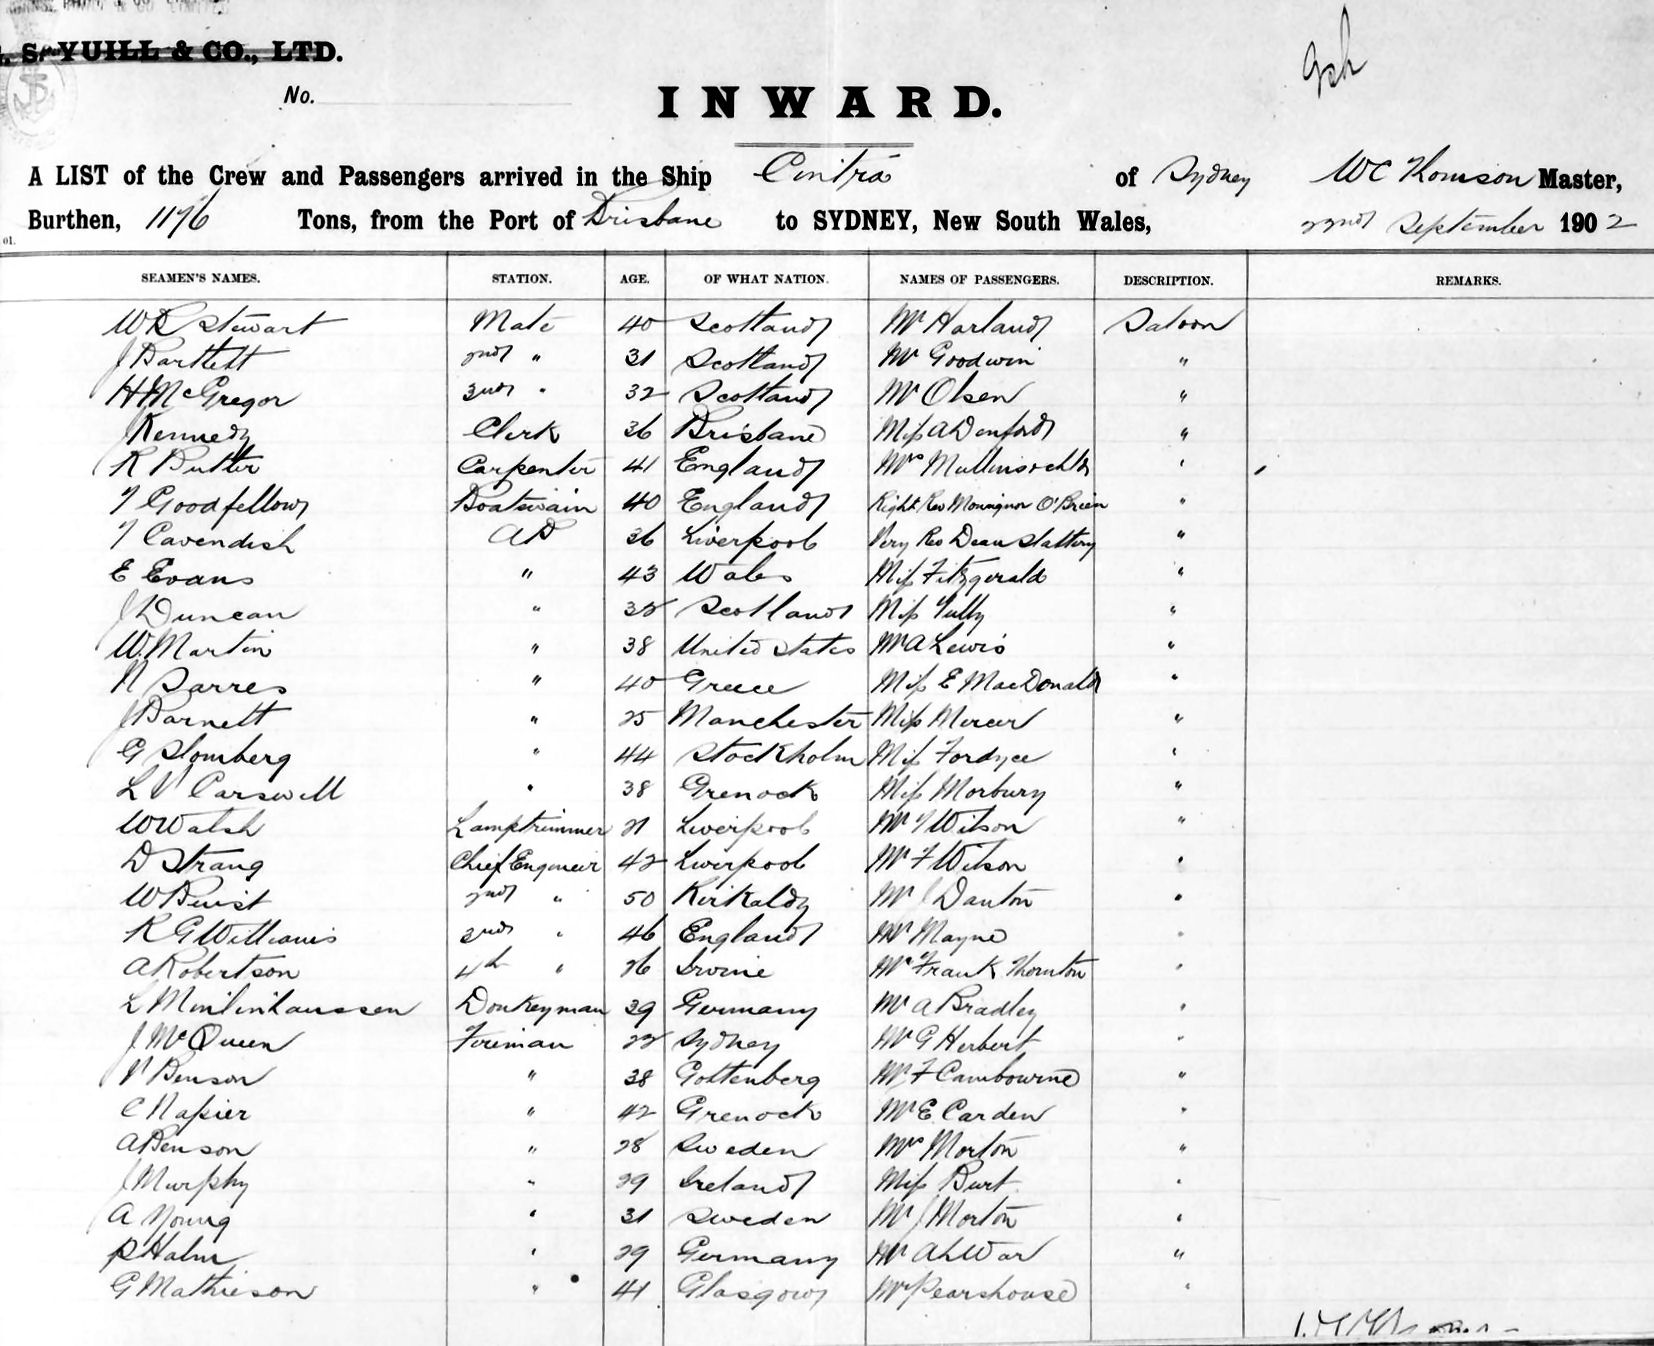 S. YUILL & CO., LTD.
No.
INWARD.
A LIST of the Crew and Passengers arrived in the Ship Cintra of Sydney WC Thomson Master,
Burthen, 1176 Tons, from the Port of Brisbane to SYDNEY, New South Wales, 22nd September 1902
SEAMEN'S NAMES. STATION. AGE. OF WHAT NATION. NAMES OF PASSENGERS. DESCRIPTION. REMARKS.
W R Stewart Mate 40 Scotland Mr Harland Saloon
J Bartlett 2nd " 31 Scotland Mr Goodwin "
H McGregor 3rd " 32 Scotland Mr Olsen "
J Kennedy Clerk 36 Brisbane Miss A Denford "
R Butler Carpenter 41 England Mrs Mullins & chld "
T Goodfellow Boatswain 40 England Right Rev Monsignor O'Brien "
T Cavendish AB 36 Liverpool Very Rev Dean Slattery "
E Evans " 43 Wales Miss Fitzgerald "
J Duncan " 32 Scotland Miss Tully "
W. Martin " 38 United States Mr A Lewis "
N Sarres " 40 Greece Miss E MacDonald "
J Barnett " 25 Manchester Miss Mercer "
G Slomberg " 44 Stockholm Miss Fordyce "
L V Carswell " 38 Grenock Miss Morbury "
W Walsh Lamptrimmer 21 Liverpool Mr T Wilson "
D Strang Chief Engineer 42 Liverpool Mr F Wilson "
W Buist 2nd " 50 Kirkaldy Mr J Danton "
R G Williams 3rd " 46 England Mr Mayne "
A Robertson 4th " 26 Irvine Mr Frank Thornton "
L Donkeyman 39 Germany Mr A Bradley "
J McQueen Fireman 22 Sydney Mr G Herbert "
V Benson " 38 Gottenberg Mr F Cambourne "
C Napier " 42 Grenock Mr E Carden "
A Benson " 28 Sweden Mrs Morton "
J Murphy " 29 Ireland Miss Burt "
A Young " 31 Sweden Mr J Morton "
P Halm " 29 Germany Mr Ah War "
G Mathieson " 41 Glasgow Mr Pearshouse "